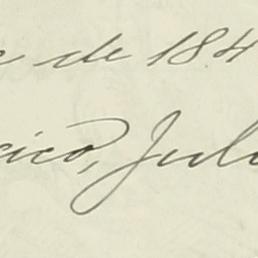 de 184
xico, Julio